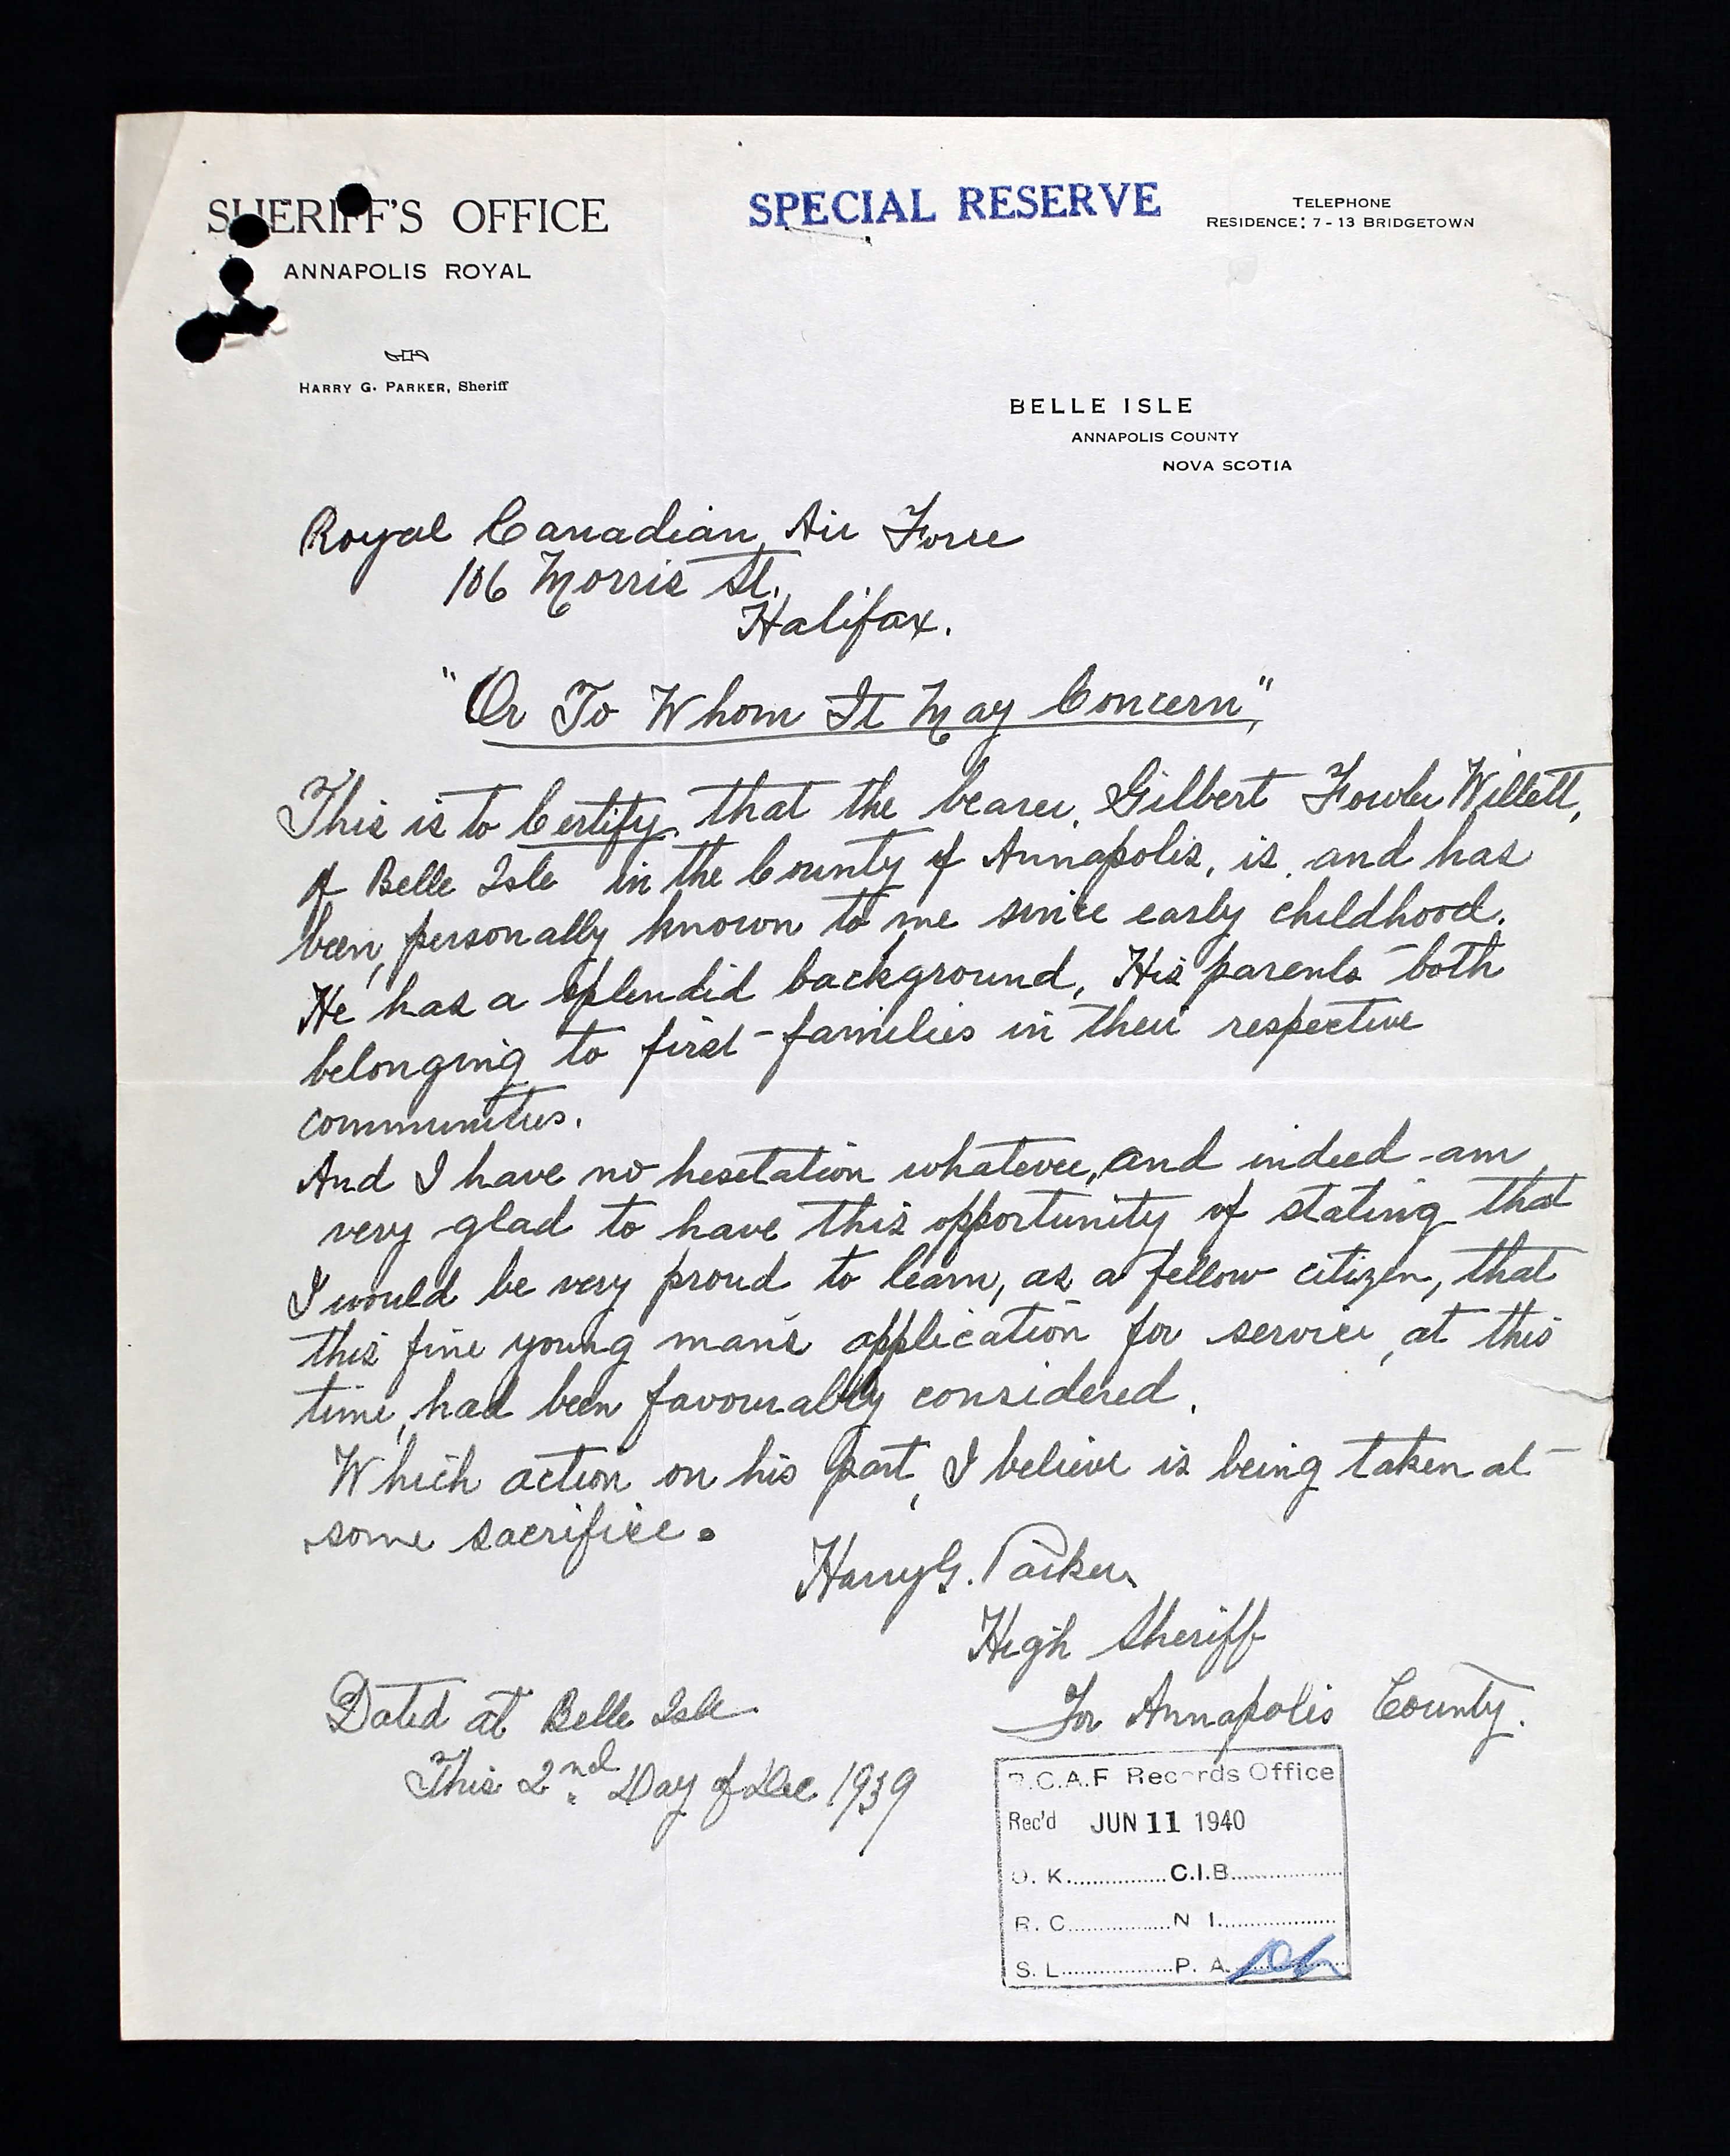 SHERIFF'S OFFICE
ANNAPOLIS ROYAL
HARRY G. PARKER, Sheriff
SPECIAL RESERVE
TELEPHONE
RESIDENCE: 7-13 BRIDGETOWN
BELLE ISLE
ANNAPOLIS COUNTY
NOVA SCOTIA
Royal Canadian Air Force
106 Morris St.
Halifax.
"Or To Whom It May Concern",
This is to Certify, that the bearer, Gilbert Fowler Willett,
of Belle Isle in the County of Annapolis, is, and has
been, personally known to me since early childhood.
He has a splendid background, His parents both
belonging to first-families in their respective
communities.
And I have no hesitation whatever, and indeed am
very glad to have this opportunity of stating that
I would be very proud to learn, as a fellow citizen, that
this fine young man's application for service, at this
time, had been favourably considered.
Which action on his part, I believe is being taken at
some sacrifice.
Harry G. Parker
High Sheriff
For Annapolis County.
Dated at Belle Isle
This 2nd Day of Dec 1939
R.C.A.F Records Office
Rec'd JUN 11 1940
O. K. C.I.B.
R. C. N I.
S. L. P. A.